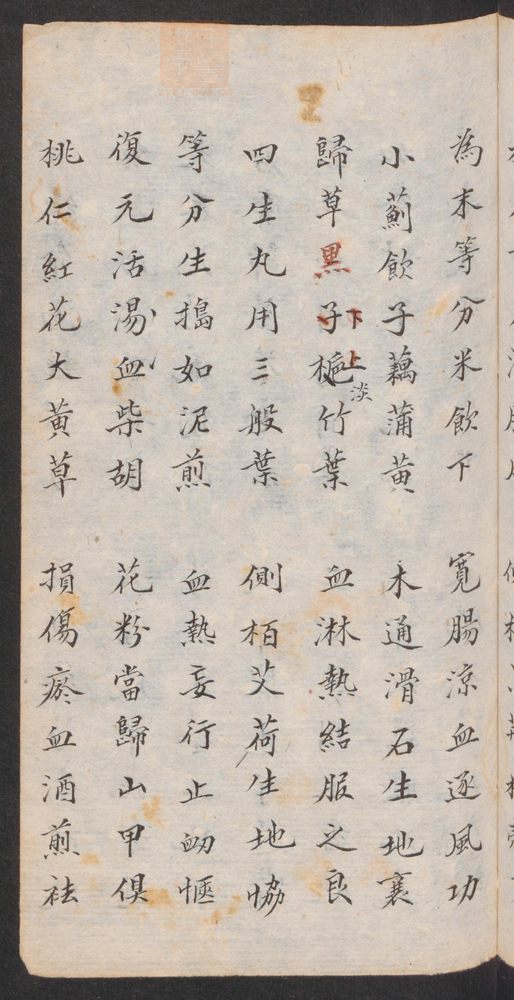 為末等分米飲下　寬腸涼血逐風功
小薊飲子藕蒲黃　木通滑石生地襄
歸草黑子梔淡竹葉　血淋熱結服之良
下上
四生丸用三般葉　側栢艾荷生地恊
等分生搗如泥煎　血熱妄行止衂愜
復元活湯血柴胡　花粉當歸山甲俱
桃仁紅花大黃草　損傷瘀血酒煎祛